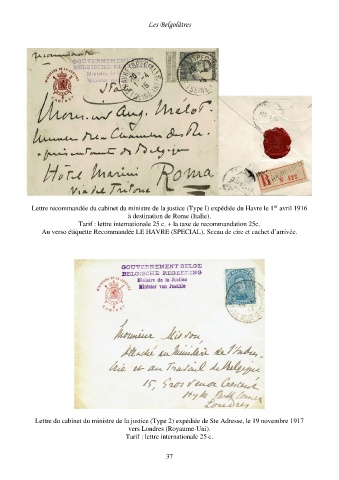 Les Belgolâtres
recommandée
GOUVERNEMENT
BELGISCHE REG
Monsieur Aug. Mélot.
Membre de la Chambre des Re-
présentants de Belgique
Hotel Marini Roma
Via del Tritone
Lettre recommandée du cabinet du ministre de la justice (Type 1) expédiée du Havre le 1er avril 1916
à destination de Rome (Italie).
Tarif : lettre internationale 25 c. + la taxe de recommandation 25c.
Au verso étiquette Recommandée LE HAVRE (SPECIAL), Sceau de cire et cachet d'arrivée.
GOUVERNEMENT BELGE
BELGISCHE REGEERING
Ministère de la Justice
Ministerie van Justitie
Monsieur
Attaché au Ministère de l'Indus-
trie et du Travail de Belgique
15, Grosvenor Crescent
Hyde Park Corner
Londres
Lettre du cabinet du ministre de la justice (Type 2) expédiée de Ste Adresse, le 19 novembre 1917
vers Londres (Royaume-Uni).
Tarif : lettre internationale 25 c.
37